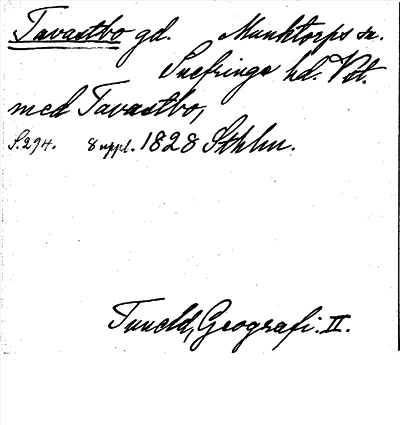 Tavastbo gd. Munktorps sn.
Snefringe hd. Vstm.
med Tavastbo,
S. 294. 8 uppl. 1828 Sthlm.
Tuneld, Geografi. II.